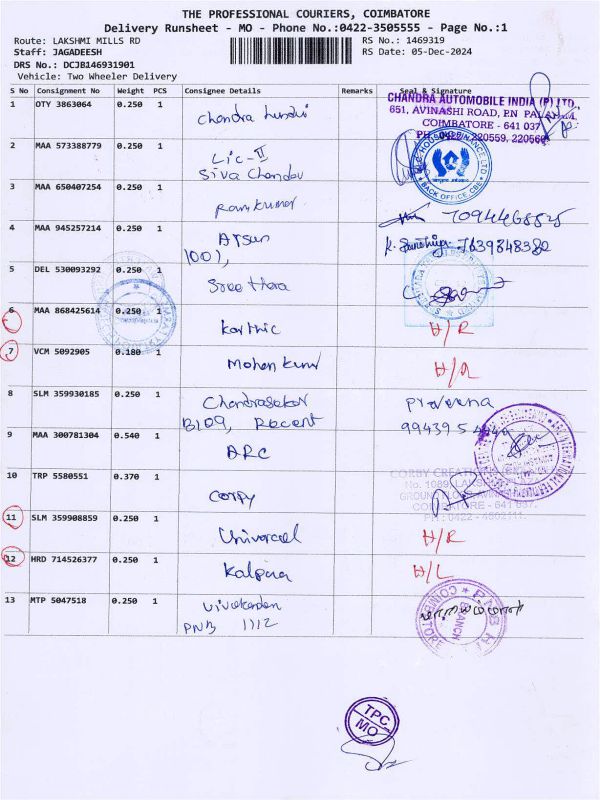 THE PROFESSIONAL COURIERS, COIMBATORE
Delivery Runsheet - MO - Phone No.:0422-3505555 - Page No.:1
Route: LAKSHMI MILLS RD
RS No.: 1469319
Staff: JAGADEESH
RS Date: 05-Dec-2024
DRS No.: DCJB146931901
Vehicle: Two Wheeler Delivery
S No Consignment No Weight PCS Consignee Details Remarks Seal & Signature
1 OTY 3863064 0.250 1
Chandra
CHANDRA AUTOMOBILE INDIA (P) LTD.,
651, AVINASHI ROAD, P.N
COIMBATORE - 641 037
PH: 220559, 220560
2 MAA 573388779 0.250 1
LIC-II
Siva Chandau
HOUSING FINANCE LTD
BACK OFFICE CBE
3 MAA 650407254 0.250 1
Ramkumar
4 MAA 945257214 0.250 1
1001,
5 DEL 530093292 0.250 1
Sree thara
6 MAA 868425614 0.250 1
Karthic
H/R
7 VCM 5092905 0.180 1
Mohan Kumr
8 SLM 359930185 0.250 1
Chandrasekar
B109,
Praveena
99439 5
9 MAA 300781304 0.540 1
ARC
10 TRP 5580551 0.370 1
CORBY CREATIONS
No. 1089,
GROUND FLOOR
COIMBATORE - 641 037.
PH: 0422 -
11 SLM 359908859 0.250 1
H/R
12 HRD 714526377 0.250 1
Kalpana
H/L
13 MTP 5047518 0.250 1
PNB 1112
COIMBATORE
BRANCH
TPC
MO